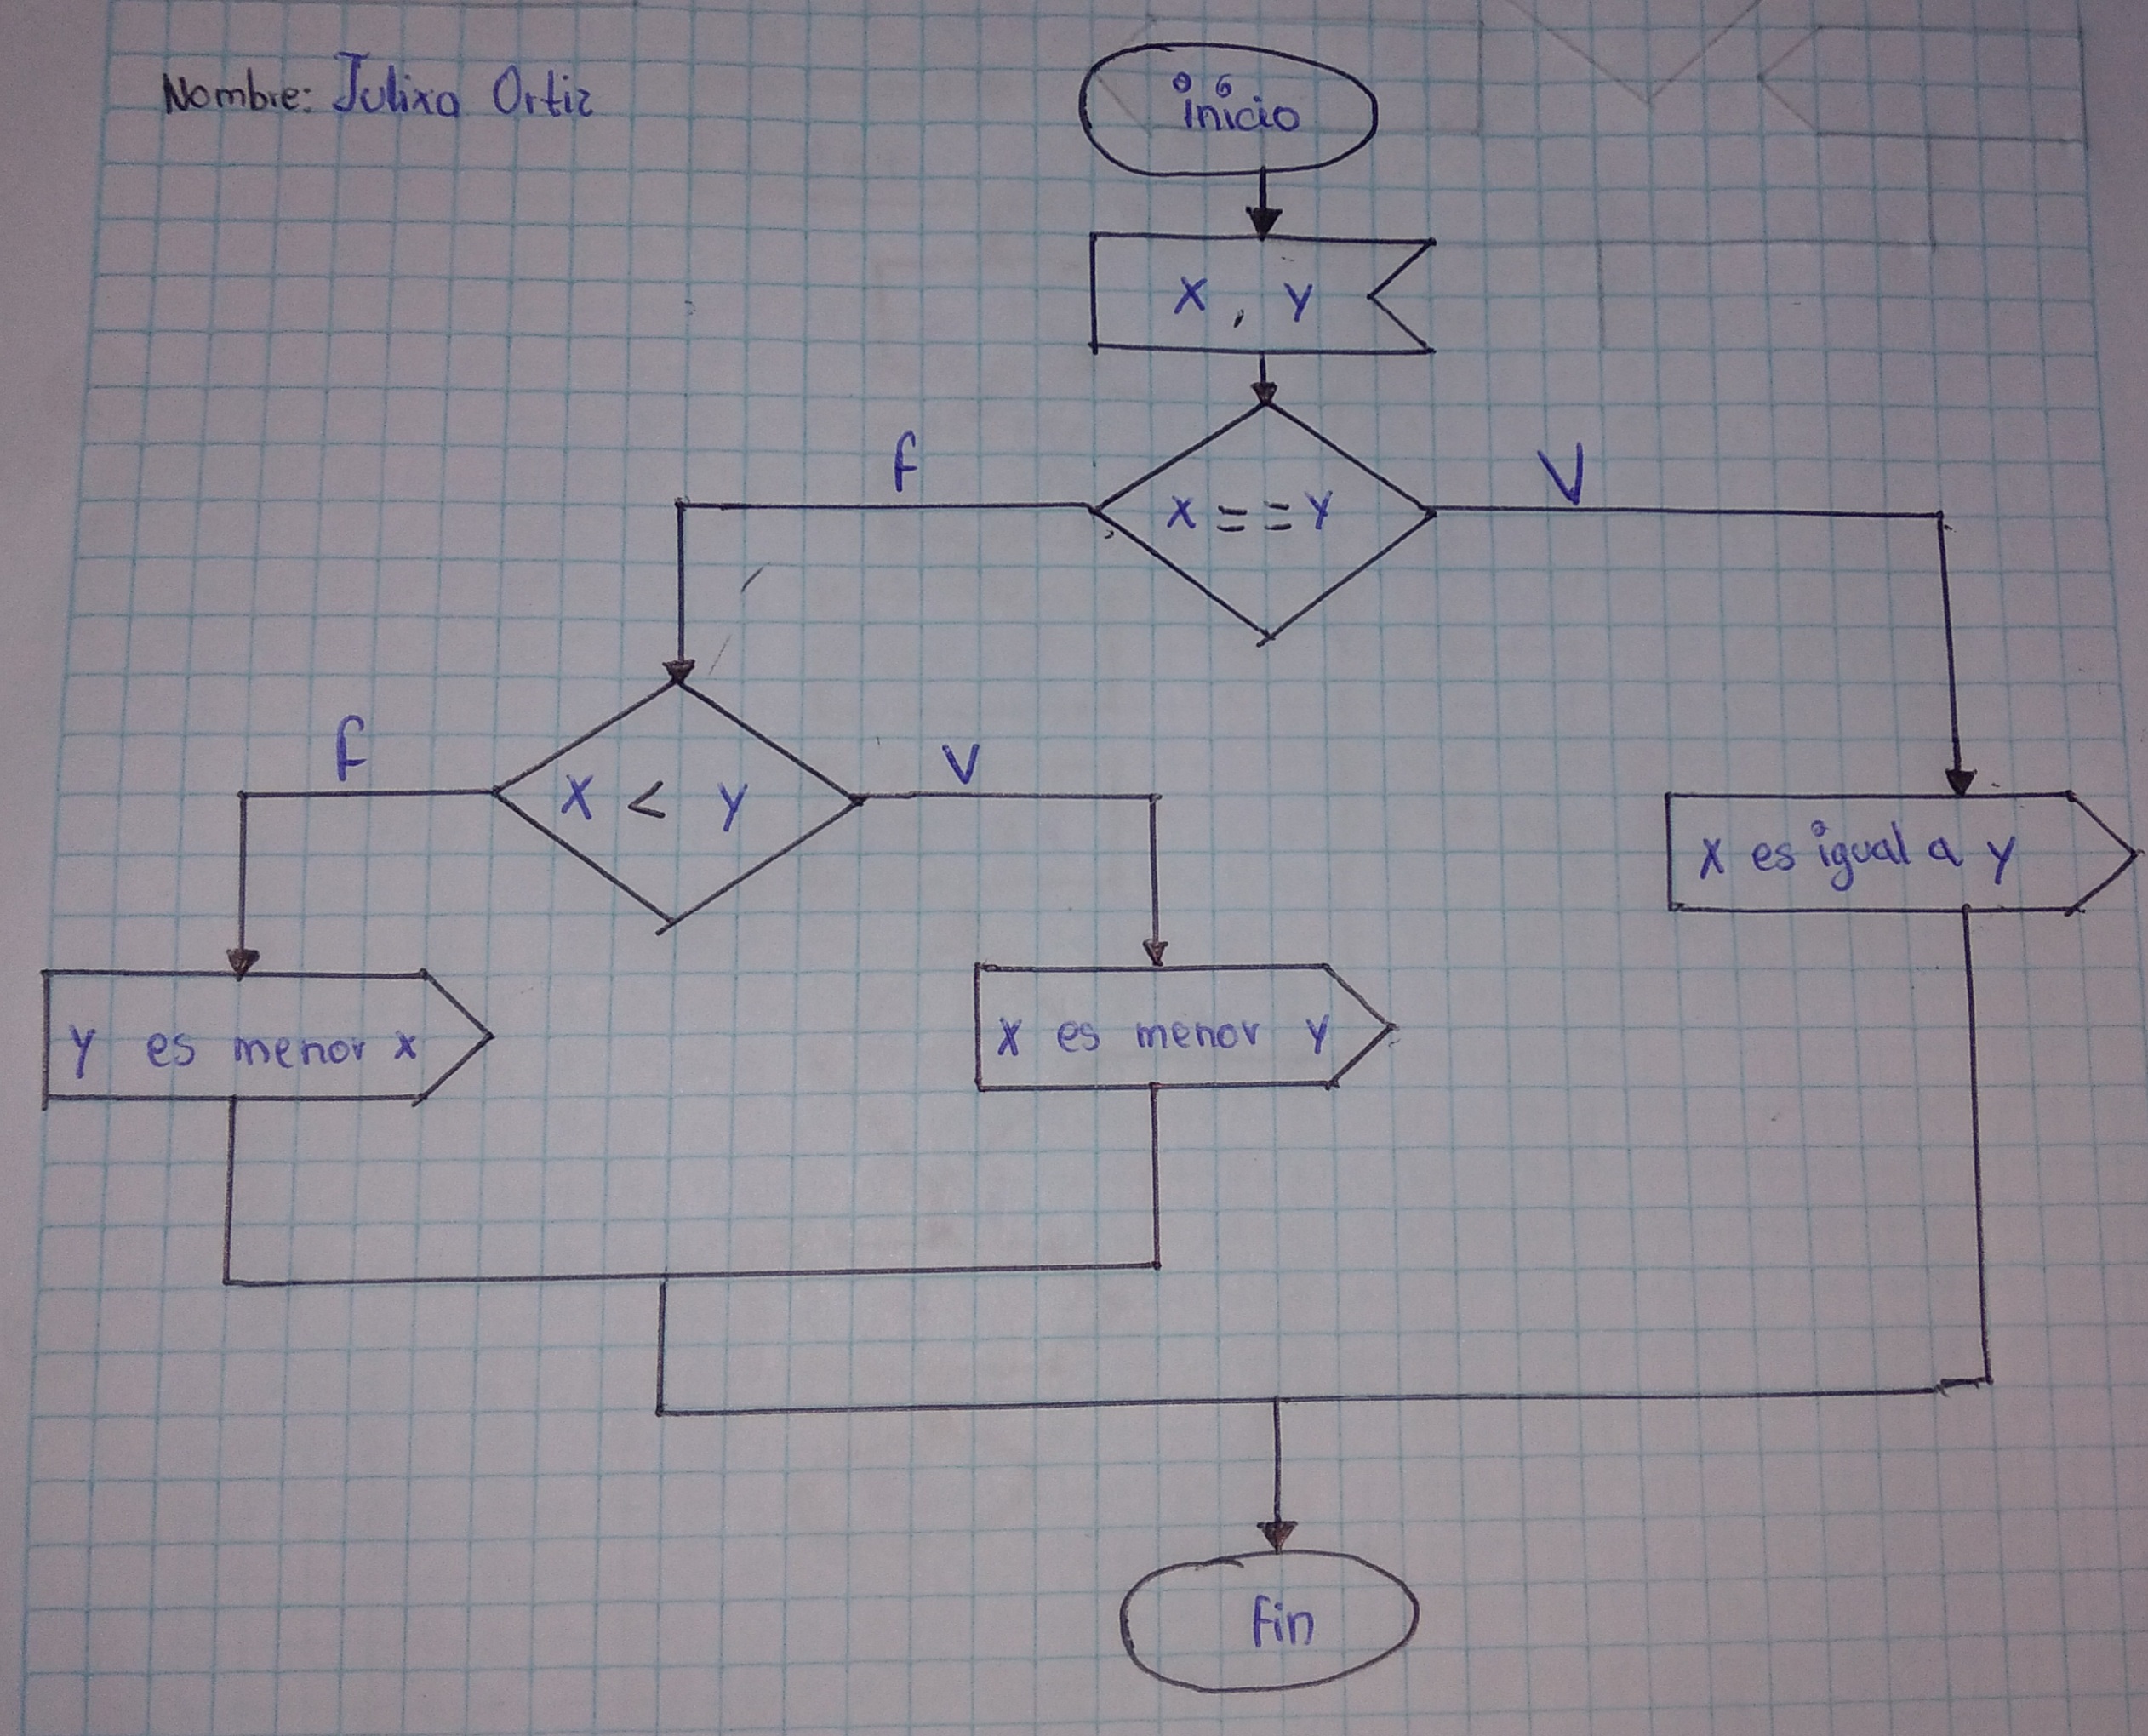 Nombre: Julixa Ortiz
inicio
X, Y
f
V
X == Y
f
V
X < Y
X es igual a y
Y es menor x
X es menor y
fin